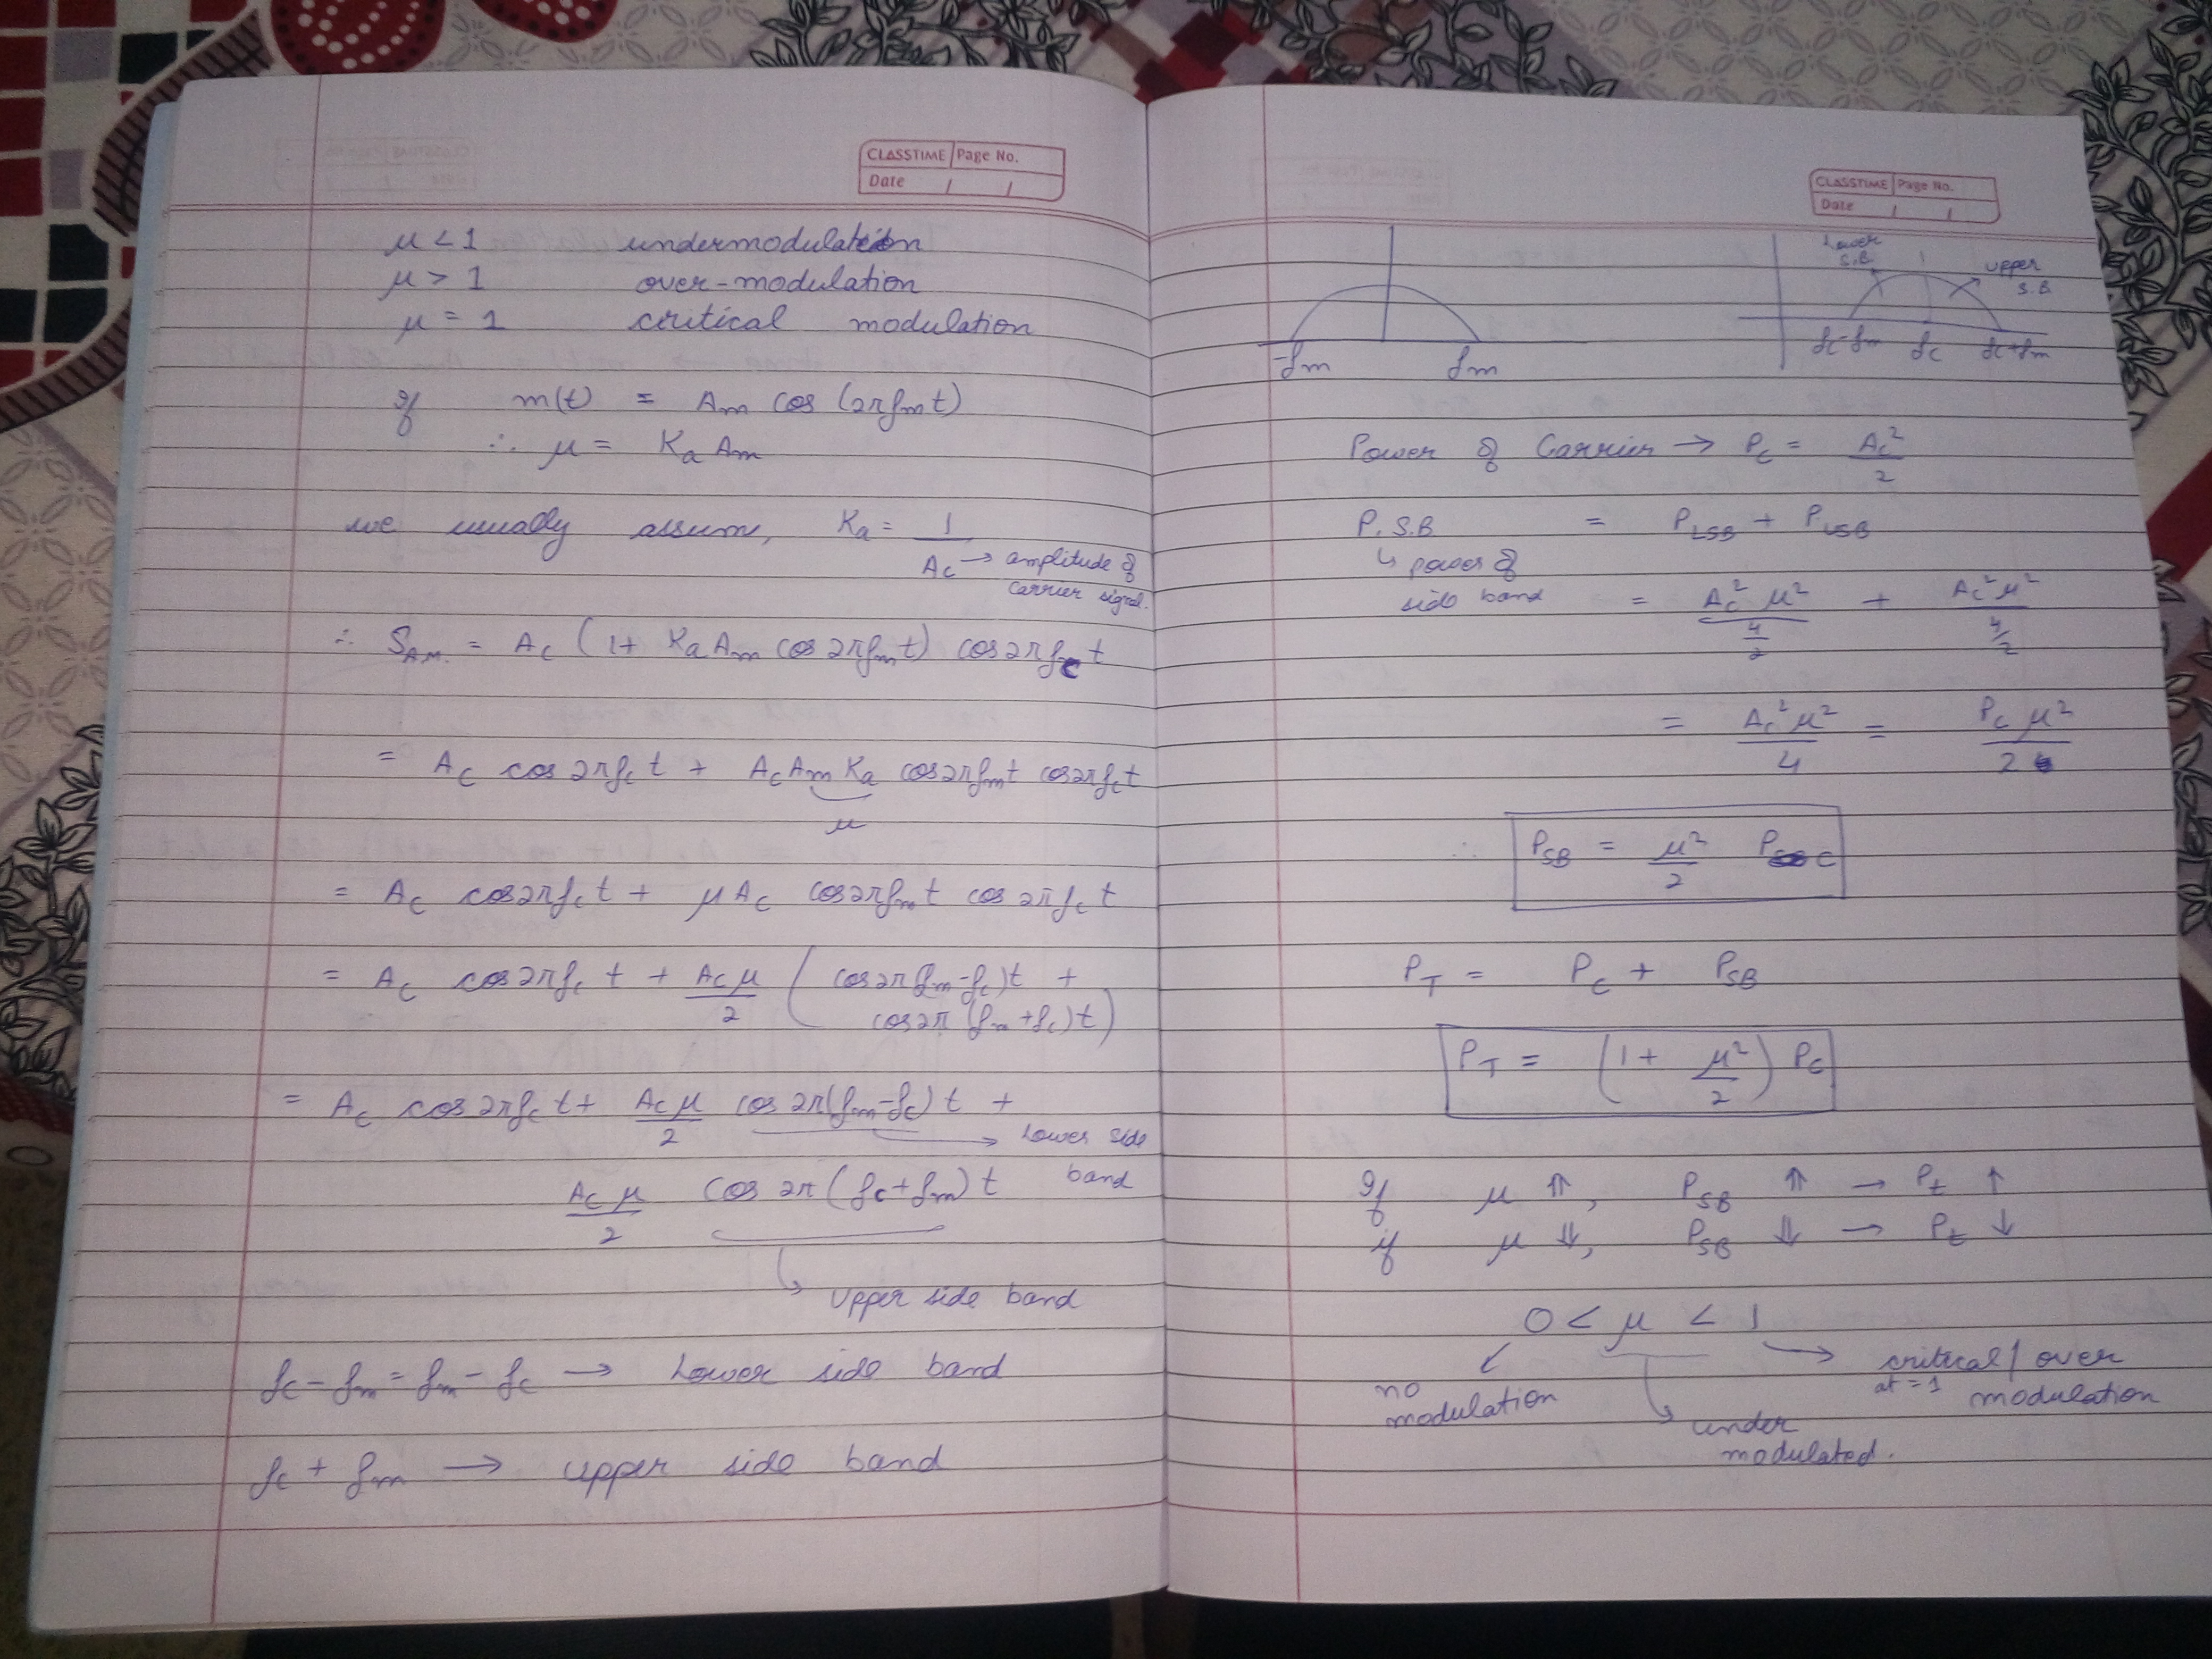 CLASSTIME Page No.
Date / /
μ < 1 undermodulation
μ > 1 over-modulation
μ = 1 critical modulation
If m(t) = Am cos (2πfmt)
∴ μ = Ka Am
we usually assume, Ka = 1/Ac → amplitude of carrier signal.
∴ SA.M. = Ac (1 + KaAm cos2πfmt) cos2πfct
= Ac cos2πfct + AcAmKa cos2πfmt cos2πfct
μ
= Ac cos2πfct + μAc cos2πfmt cos2πfct
= Ac cos2πfct + Acμ/2 (cos2π(fm-fc)t +
cos2π(fm+fc)t)
= Ac cos2πfct + Acμ/2 cos2π(fm-fc)t +
→ Lower side band
Acμ/2 cos2π(fc+fm)t
Upper side band
fc - fm = fm - fc → Lower side band
fc + fm → upper side band
CLASSTIME Page No.
Date / /
Lower S.B. upper S.B.
-fm fm
fc-fm fc fc+fm
Power of Carrier → Pc = Ac²/2
P.S.B = PLSB + PUSB
↳ power of side band
= Ac²μ²/4/2 + Ac²μ²/4/2
= Ac²μ²/4 = Pcμ²/2
∴ PSB = μ²/2 Pc
PT = Pc + PSB
PT = (1 + μ²/2) Pc
If μ ⇑, PSB ⇑ → Pt ↑
if μ ⇓, PSB ⇓ → Pt ↓
0 < μ < 1
no modulation
under modulated.
critical/over modulation
at = 1